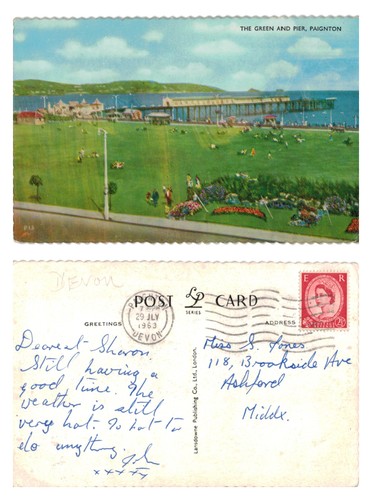 THE GREEN AND PIER, PAIGNTON
Devon
POST LP CARD
SERIES
GREETINGS
ADDRESS
29 JLY
1963
DEVON
E R
Dearest Sharon.
Still having a
good time. The
weather is still
very hot. To hot to
do anything.
xxxxx
Lansdowne Publishing Co., Ltd., London.
Miss S. Jones
118, Brookside Ave
Ashford
Middx.